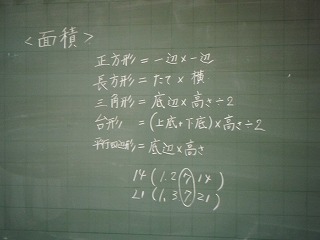 <面積>
正方形 = 一辺 × 一辺
長方形 = たて × 横
三角形 = 底辺 × 高さ ÷ 2
台形 = (上底 + 下底) × 高さ ÷ 2
平行四辺形 = 底辺 × 高さ
14 (1, 2, 7, 14)
21 (1, 3, 7, 21)